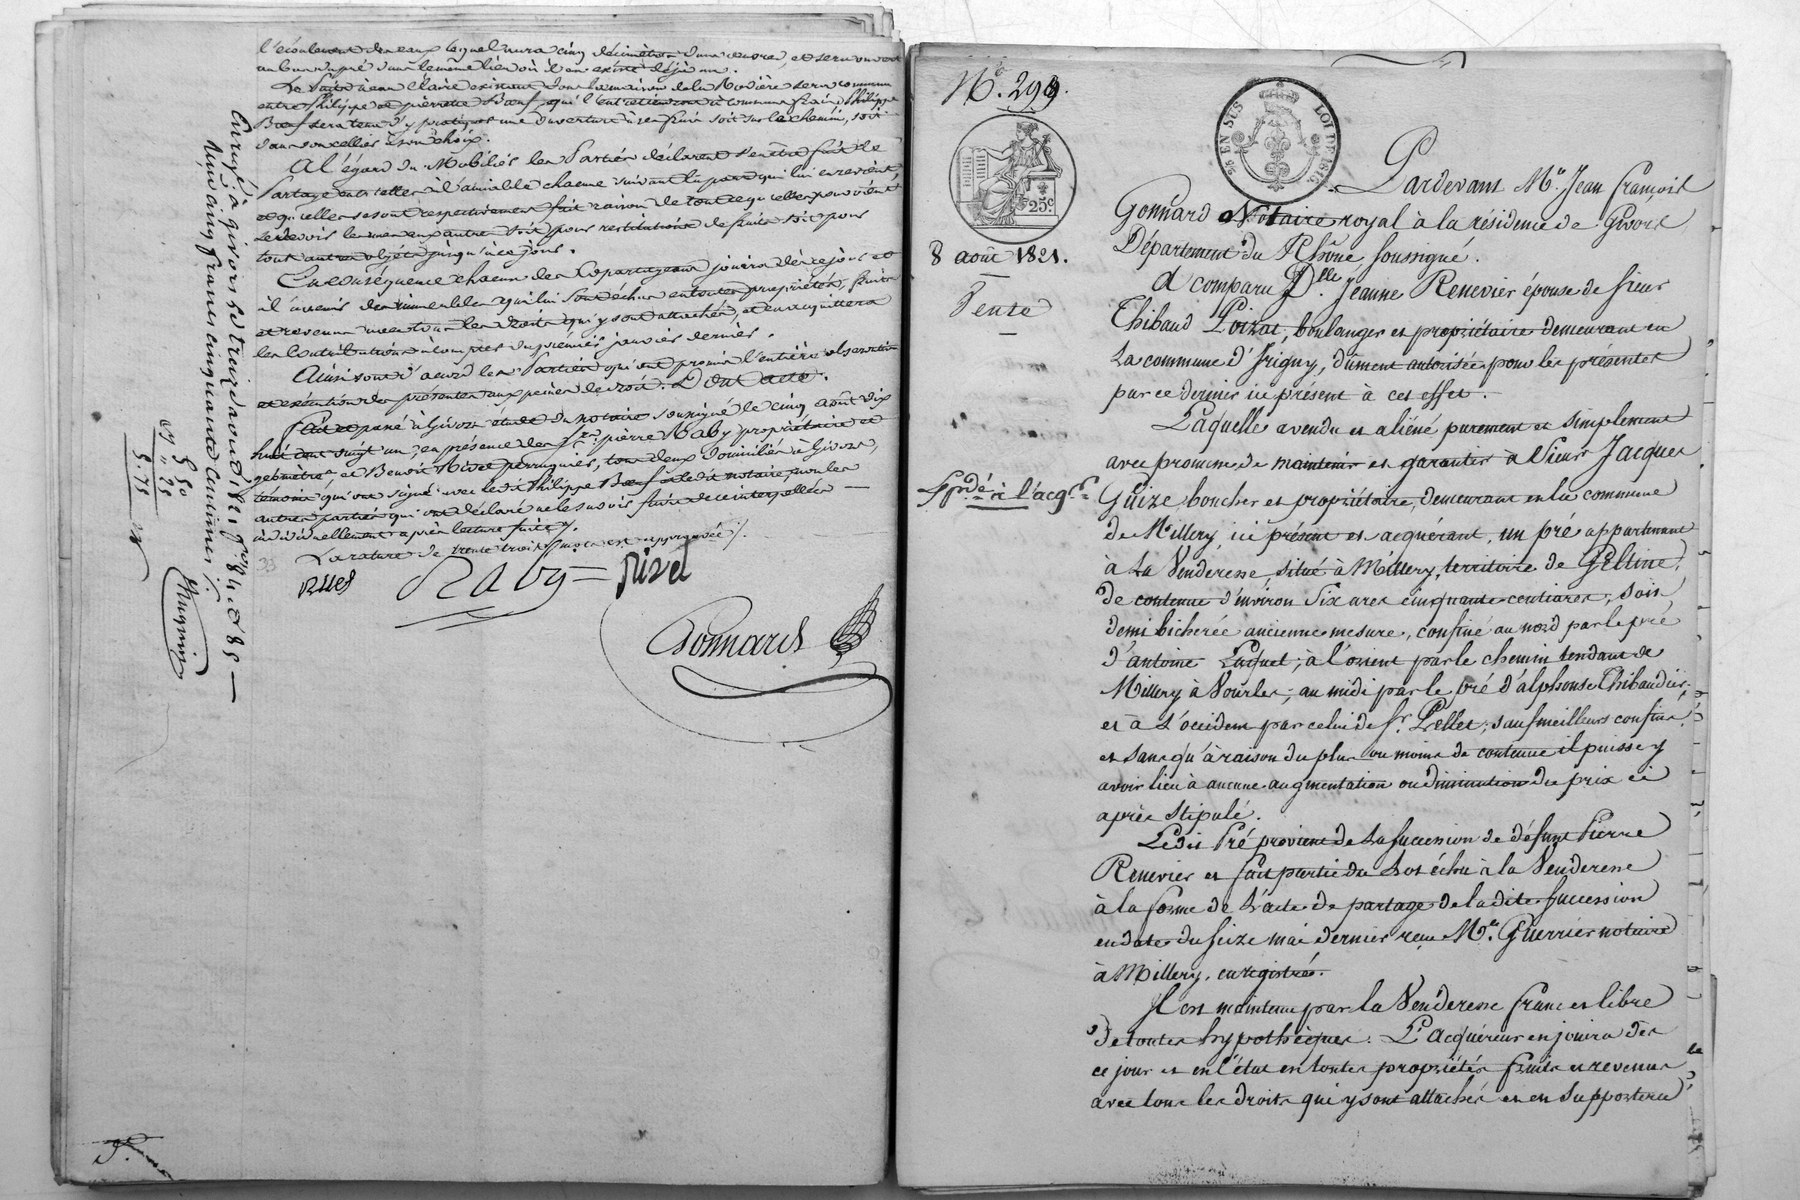 l'écoulement des eaux lequel aura cinq décimètres d'une œuvre, et sera ouvert
au bas du pré dans le même lieu où il en existe déjà un.
Le Puits à eau claire existant dans la maison de la Rivière sera commun
entre Philippe et pierrette Bœuf, qui l'entretiendront à communs frais, Philippe
Bœuf sera tenu d'y pratiquer une ouverture à ses frais soit sur le chemin, soit
dans son cellier à son choix.
A l'égard du Mobilier les Parties déclarent s'en être fait le
Partage entr'elles à l'amiable chacune suivant la part qui lui en revient,
et qu'elles se sont respectivement fait raison de tout ce qu'elles pouvaient
se devoir les unes aux autres soit pour restitutions de fruits soit pour
tout autre objet jusqu'à ce jour.
En conséquence chacun des Copartageans jouira dès ce jour et
à l'avenir des immeubles qui lui sont échus en toutes propriétés, fruits
et revenus avec tous les droits qui y sont attachés, et en acquittera
les Contributions à compter du premier janvier dernier.
Ainsi sont d'accord les Parties qui ont promis l'entière observation
et exécution des présentes aux peines de droit. Dont acte.
Fait et passé à Givors étude du notaire soussigné le cinq août dix
huit cent vingt un, en présence des Srs. pierre Raby propriétaire et
géomètre, et Benoît Rivet perruquier, tous deux domiciliés à Givors,
témoins qui ont signé avec ledit Philippe Bœuf et le dit notaire, non les
autres parties qui ont déclaré ne le savoir faire de ce interpellées
individuellement après lecture faite.
La rature de trente trois mots est approuvée.
33
Raby
Rivet
Gonnard
Enregé. à givors le treize août 1821 f° 84 et 85
Reçu cinq francs cinquante centimes
5 50
" 25
5.75
N°. 299.
EN SUS
LOI DE 1816.
25c
8 août 1821.
Vente
Expdé. à l'acqr.
Pardevant Me. Jean françois
Gonnard Notaire royal à la résidence de Givors
Département du Rhône soussigné.
A comparu Dlle. Jeanne Renevier épouse de sieur
Thibaud Loizat, boulanger et propriétaire demeurant en
la commune d'Irigny, dûment autorisée pour les présentes
par ce dernier ici présent à cet effet.
Laquelle a vendu et aliéné purement et simplement
avec promesse de maintenir et garantir à Sieur Jacques
Guize boucher et propriétaire, demeurant en la commune
de Millery, ici présent et acquérant, un pré appartenant
à la Venderesse, situé à Millery, territoire de Geltine,
de contenue d'environ six ares cinquante centiares, soit
demi bicherée ancienne mesure, confiné au nord par le pré
d'antoine Paquet; à l'orient par le chemin tendant de
Millery à Vourles; au midi par le pré d'alphonse Thibaudier;
et à l'occident par celui de Sr. Pellet; sauf meilleurs confins
et sans qu'à raison du plus ou moins de contenue il puisse y
avoir lieu à aucune augmentation ou diminution du prix ci
après stipulé.
Ledit Pré provient de la succession de défunt Pierre
Renevier et fait partie du Lot échu à la Venderesse
à la forme de l'acte de partage de la dite succession
en date du seize mai dernier reçu Me. Guerrier notaire
à Millery, enregistré.
Il est maintenu par la Venderesse franc et libre
de toutes hypothèques. L'acquéreur en jouira dès
ce jour et en l'état en toutes propriétés fruits et revenus
avec tous les droits qui y sont attachés et en supportera